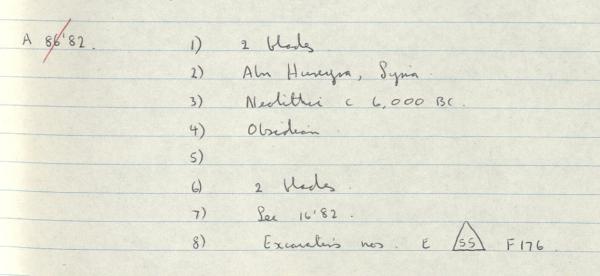 A 86'82. 1) 2 blades
2) Abu Hureyra, Syria.
3) Neolithic c 6,000 BC.
4) Obsidian
5)
6) 2 blades.
7) See 16'82.
8) Excavation nos. E SS F176.